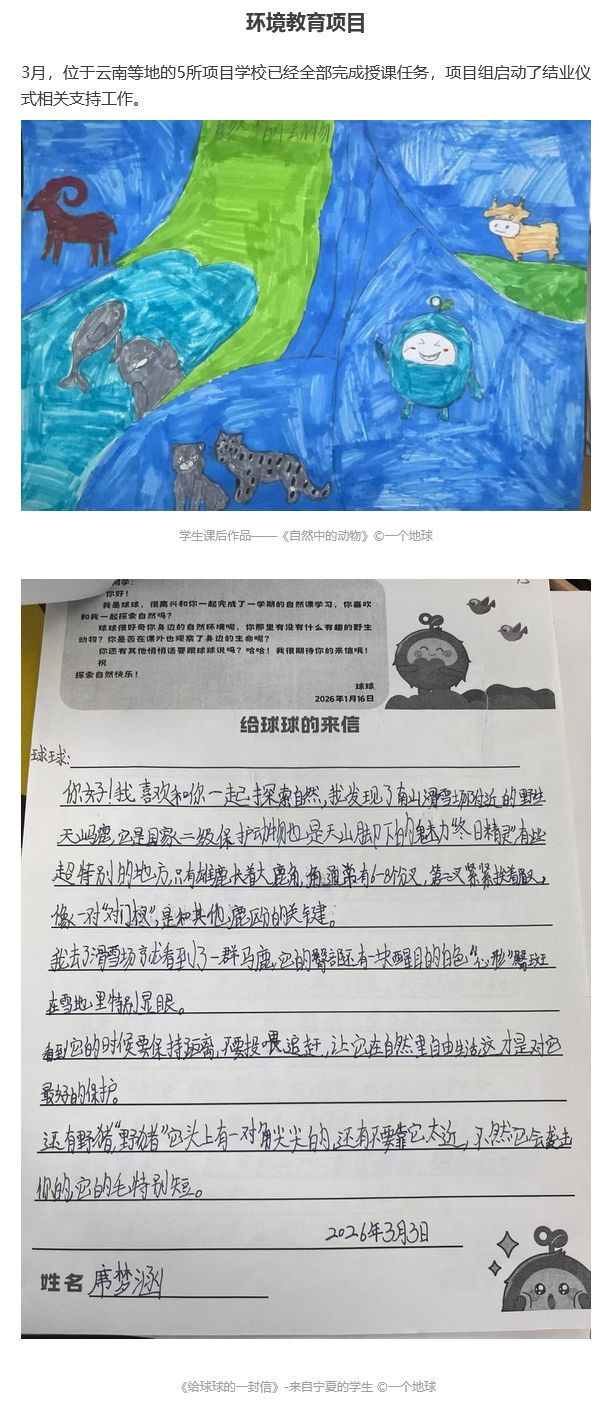 环境教育项目
3月，位于云南等地的5所项目学校已经全部完成授课任务，项目组启动了结业仪
式相关支持工作。
学生课后作品——《自然中的动物》©一个地球
同学：
你好！
我是球球，很高兴和你一起完成了一学期的自然课学习，你喜欢
和我一起探索自然吗？
球球很好奇你身边的自然环境呢，你那里有没有什么有趣的野生
动物？你是否在课外也观察了身边的生命呢？
你还有其他悄悄话要跟球球说吗？哈哈！我很期待你的来信哦！
祝
探索自然快乐！
球球
2026年1月16日
给球球的来信
球球：
你好！我喜欢和你一起探索自然，我发现了南山滑雪场附近的野生
天山马鹿，它是国家二级保护动物也是天山脚下的魅力"冬日精灵"有些
超特别的地方，只有雄鹿长着大鹿角，角通常有6-8个分叉，第二叉紧紧挨着眉叉，
像一对"对门杈"，是和其他鹿区的关键。
我去了滑雪场就看到了一群马鹿，它的臀部还有一块醒目的白色"心形"臀斑
在雪地里特别显眼。
看到它的时候要保持距离，不要投喂、追赶，让它在自然里自由生活这才是对它
最好的保护。
还有野猪，"野猪"它头上有一对角尖尖的，还有不要靠它太近，不然它会袭击
你的，它的毛特别短。
2026年3月3日
姓名 席梦涵
《给球球的一封信》-来自宁夏的学生 ©一个地球